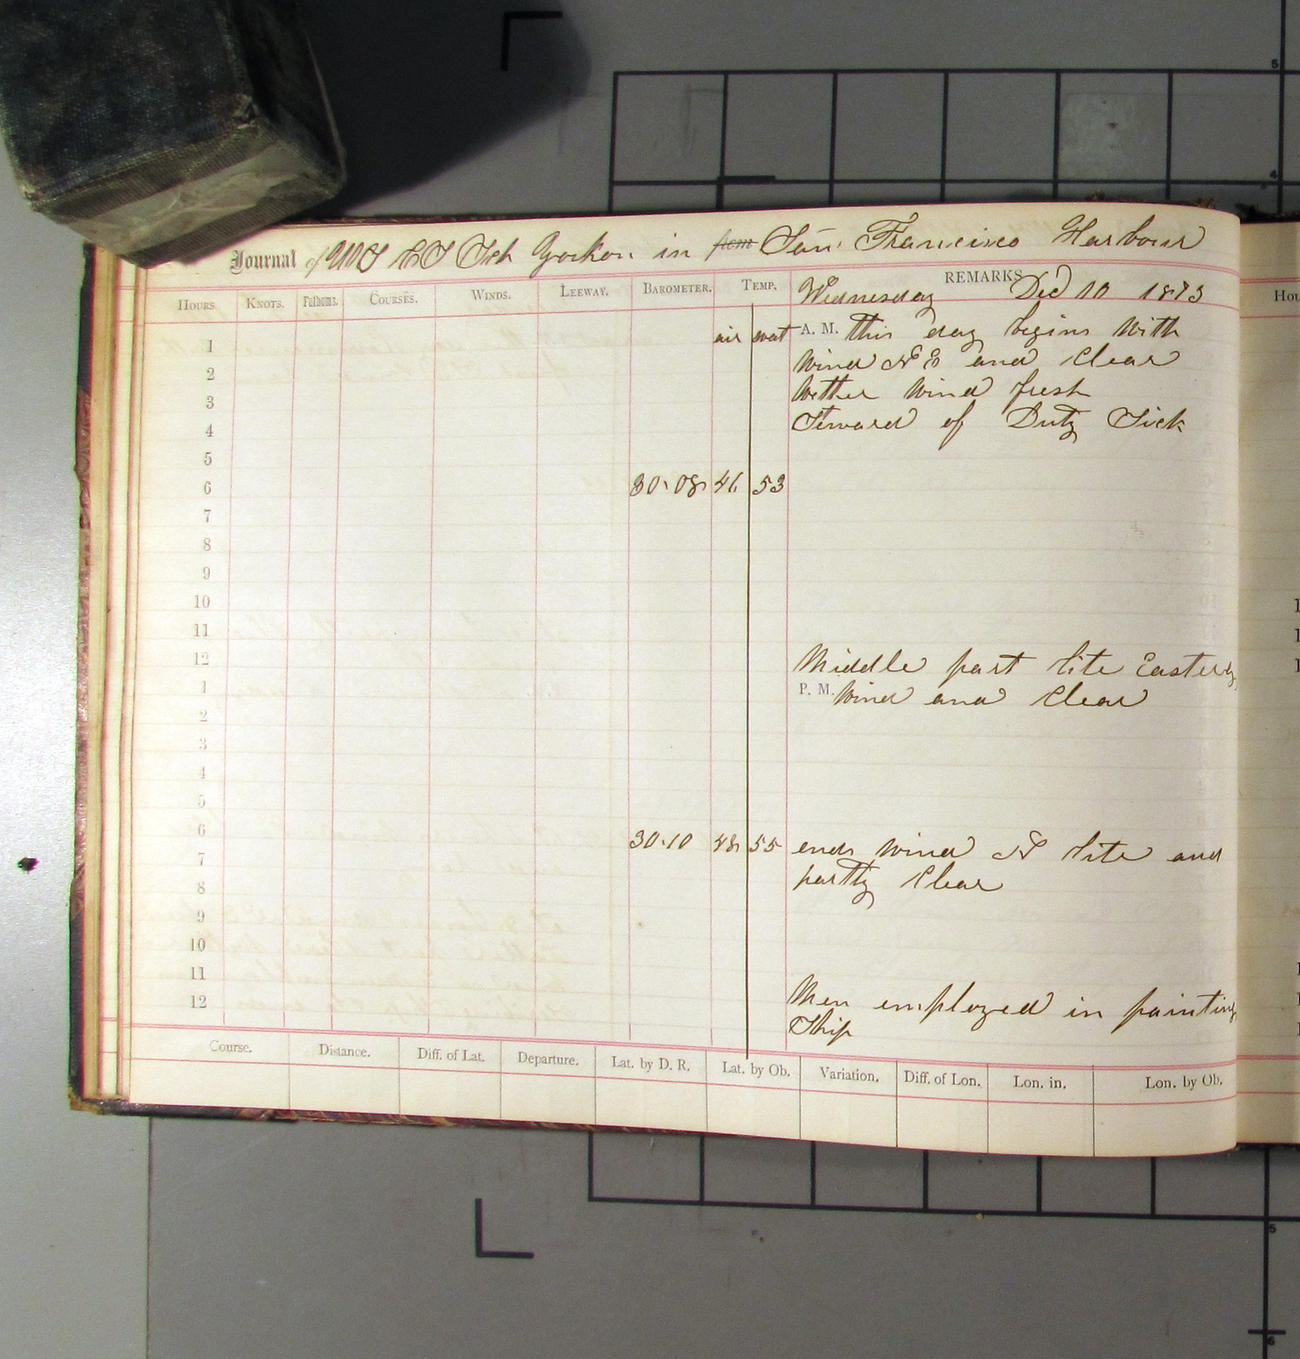 Journal of U.S. C.S. Sch Yockon. in from San Francisco Harbour
HOURS. KNOTS. Fathoms. COURSES. WINDS. LEEWAY. BAROMETER. TEMP. REMARKS
Wednesday Dec 10 1873
air wat A. M. this day begins with
1
wind N E and Clear
2
Wether wind fresh
3
Steward of Duty Sick
4
5
6 30.08 46 53
7
8
9
10
11
12 Middle part lite Easterly
1 P. M. Wind and Clear
2
3
4
5
6 30.10 48 55 ends wind N lite and
7 partly Clear
8
9
10
11 Men employed in painting
12 Ship
Course. Distance. Diff. of Lat. Departure. Lat. by D. R. Lat. by Ob. Variation. Diff. of Lon. Lon. in. Lon. by Ob.
Hou